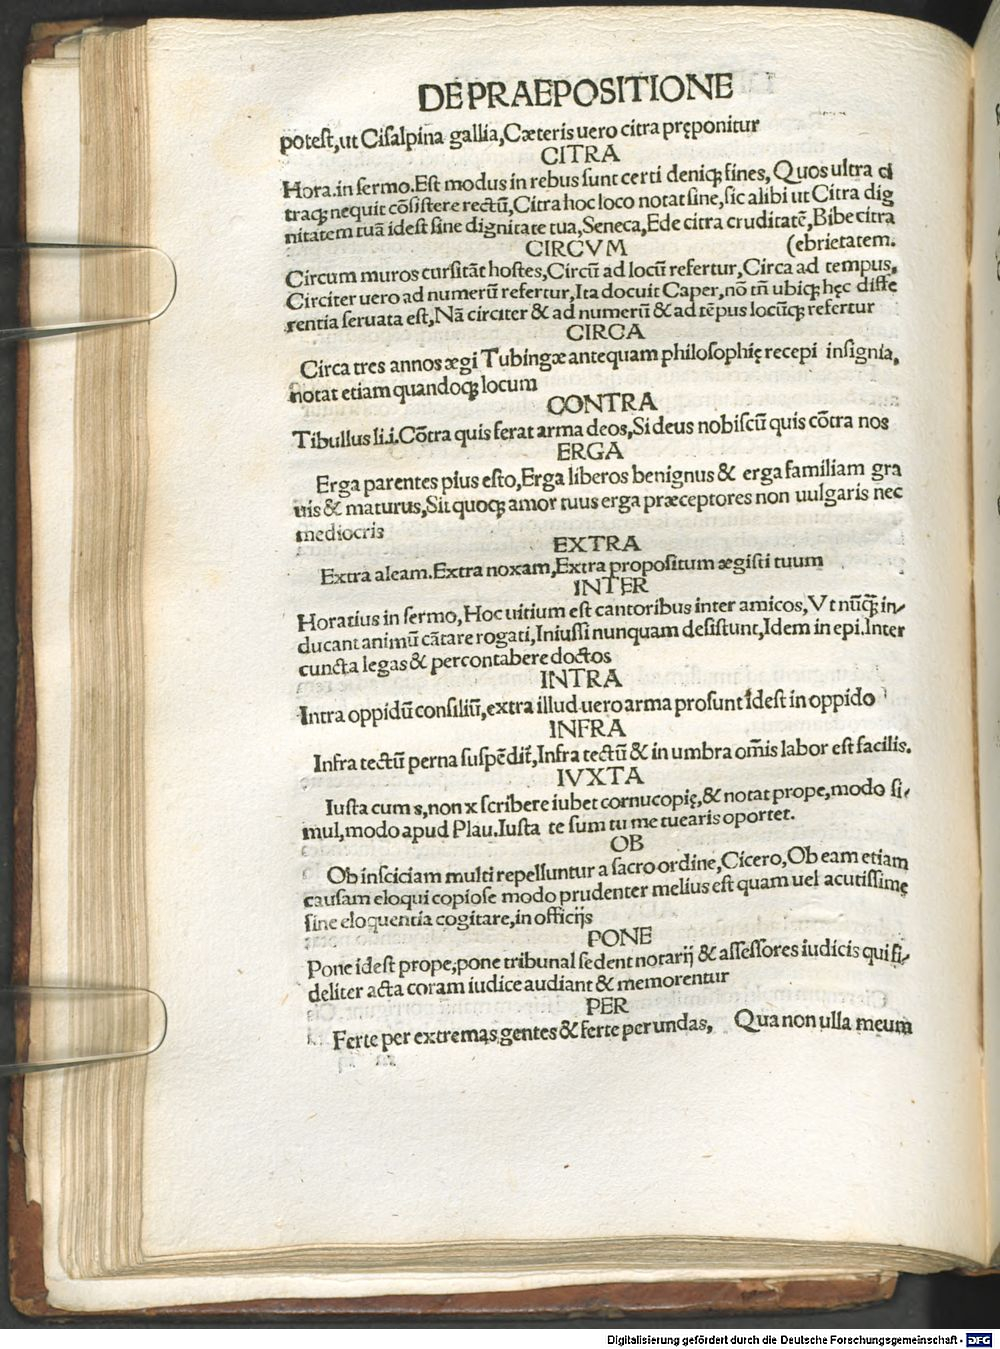 DE PRAEPOSITIONE
potest,ut Cisalpina gallia,Cæteris uero citra pręponitur
CITRA
Hora.in sermo.Est modus in rebus sunt certi deniqꝫ fines, Quos ultra ci
traqꝫ nequit cõsistere rectũ,Citra hoc loco notat sine,sic alibi ut Citra dig
nitatem tuã idest sine dignitate tua,Seneca,Ede citra cruditatẽ,Bibe citra
CIRCVM (ebrietatem.
Circum muros cursitãt hostes,Circũ ad locũ refertur,Circa ad tempus,
Circiter uero ad numerũ refertur,Ita docuit Caper,nõ tñ ubiqꝫ hęc diffe
rentia seruata est,Nã circiter & ad numerũ & ad tẽpus locũqꝫ refertur
CIRCA
Circa tres annos ægi Tubingæ antequam philosophię recepi insignia,
notat etiam quandoqꝫ locum
CONTRA
Tibullus li.i.Cõtra quis ferat arma deos,Si deus nobiscũ quis cõtra nos
ERGA
Erga parentes pius esto,Erga liberos benignus & erga familiam gra
uis & maturus,Sit quoqꝫ amor tuus erga præceptores non uulgaris nec
mediocris
EXTRA
Extra aleam.Extra noxam,Extra propositum ægisti tuum
INTER
Horatius in sermo,Hoc uitium est cantoribus inter amicos,Vt nũqꝫ̃ in/
ducant animũ cãtare rogati,Iniussi nunquam desistunt,Idem in epi.Inter
cuncta legas & percontabere doctos
INTRA
Intra oppidũ consiliũ,extra illud uero arma prosunt idest in oppido
INFRA
Infra tectũ perna suspẽdit̃,Infra tectũ & in umbra om̃is labor est facilis.
IVXTA
Iusta cum s,non x scribere iubet cornucopię,& notat prope,modo si/
mul,modo apud Plau.Iusta te sum tu me tuearis oportet.
OB
Ob insciciam multi repelluntur a sacro ordine,Cicero,Ob eam etiam
causam eloqui copiose modo prudenter melius est quam uel acutissimę
sine eloquentia cogitare,in officijs
PONE
Pone idest prope,pone tribunal sedent notarij & assessores iudicis qui fi/
deliter acta coram iudice audiant & memorentur
PER
Ferte per extremas gentes & ferte per undas, Qua non ulla meum
Digitalisierung gefördert durch die Deutsche Forschungsgemeinschaft - DFG